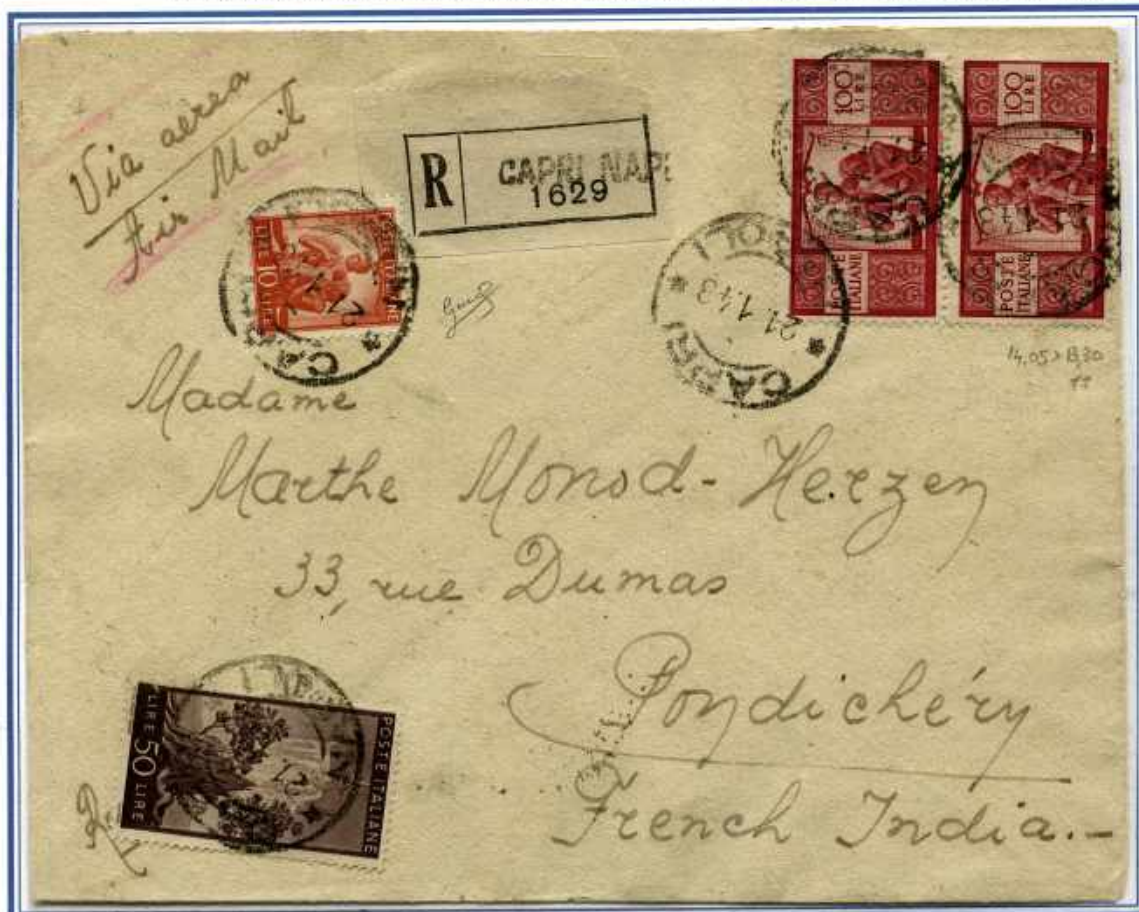 Via aerea
Air Mail
R
CAPRI NAP
1629
LIRE 10 LIRE
POSTE ITALIANE
CAPRI
21.1.48
100 LIRE
POSTE ITALIANE
100 LIRE
POSTE ITALIANE
14.05 > 13,30
Madame
Marthe Monod-Herzen
33, rue Dumas
Pondichéry
French India.-
LIRE 50 LIRE
POSTE ITALIANE